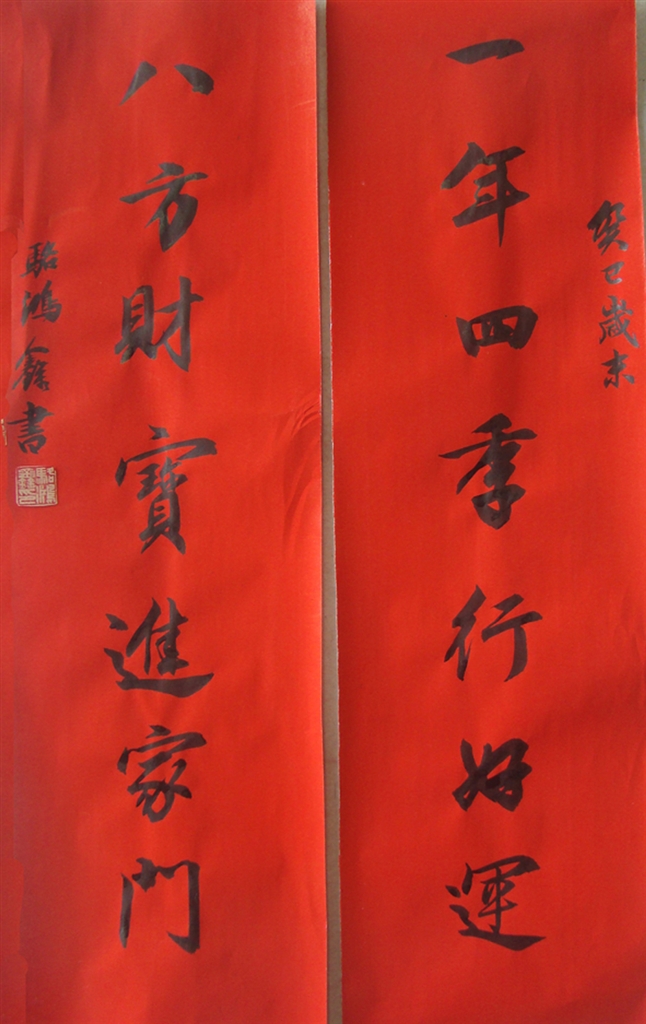 癸巳歲末
一年四季行好運
八方財寶進家門
駱鴻鑫書